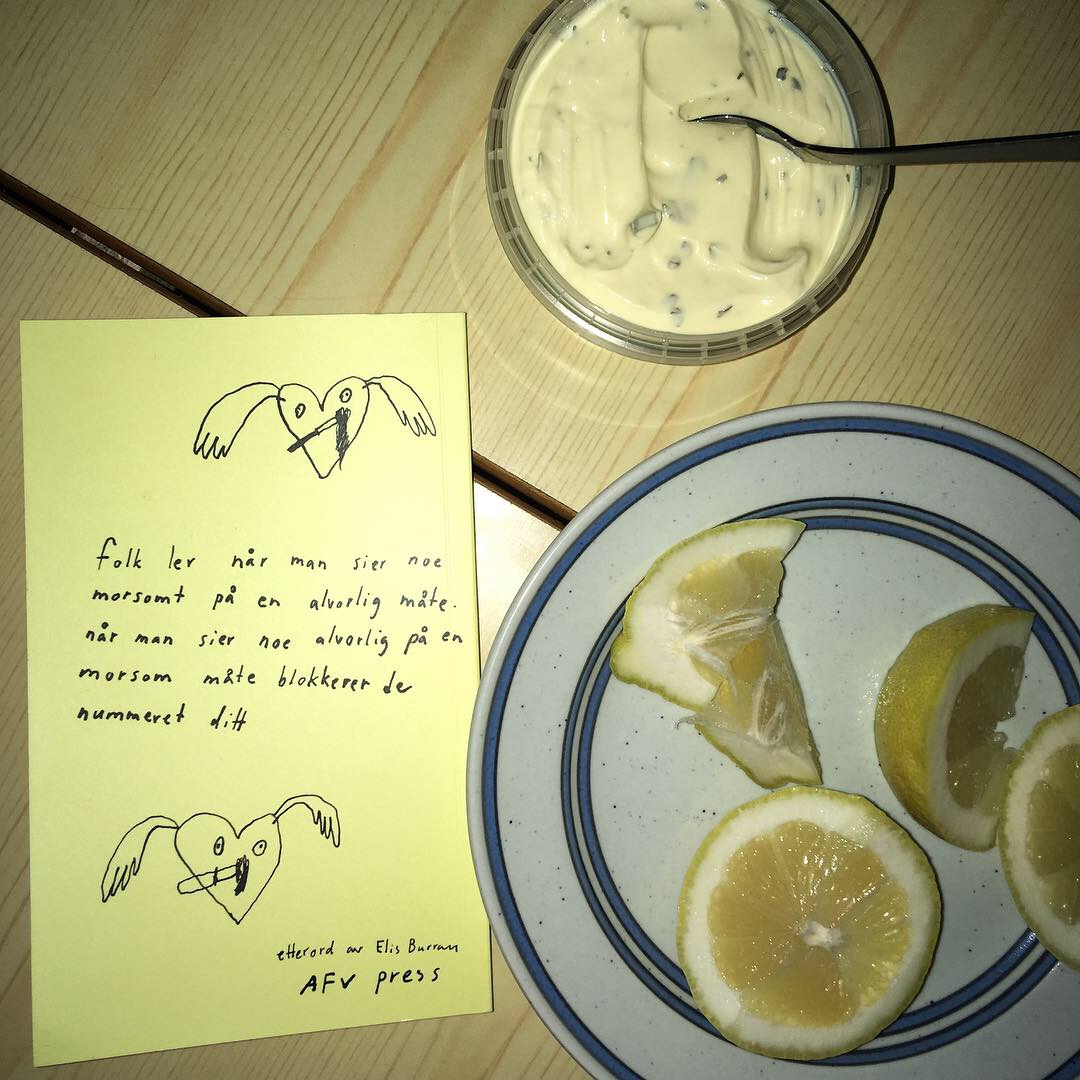 folk ler når man sier noe
morsomt på en alvorlig måte.
når man sier noe alvorlig på en
morsom måte blokkerer de
nummeret ditt
etterord av Elis Burrau
AFV press